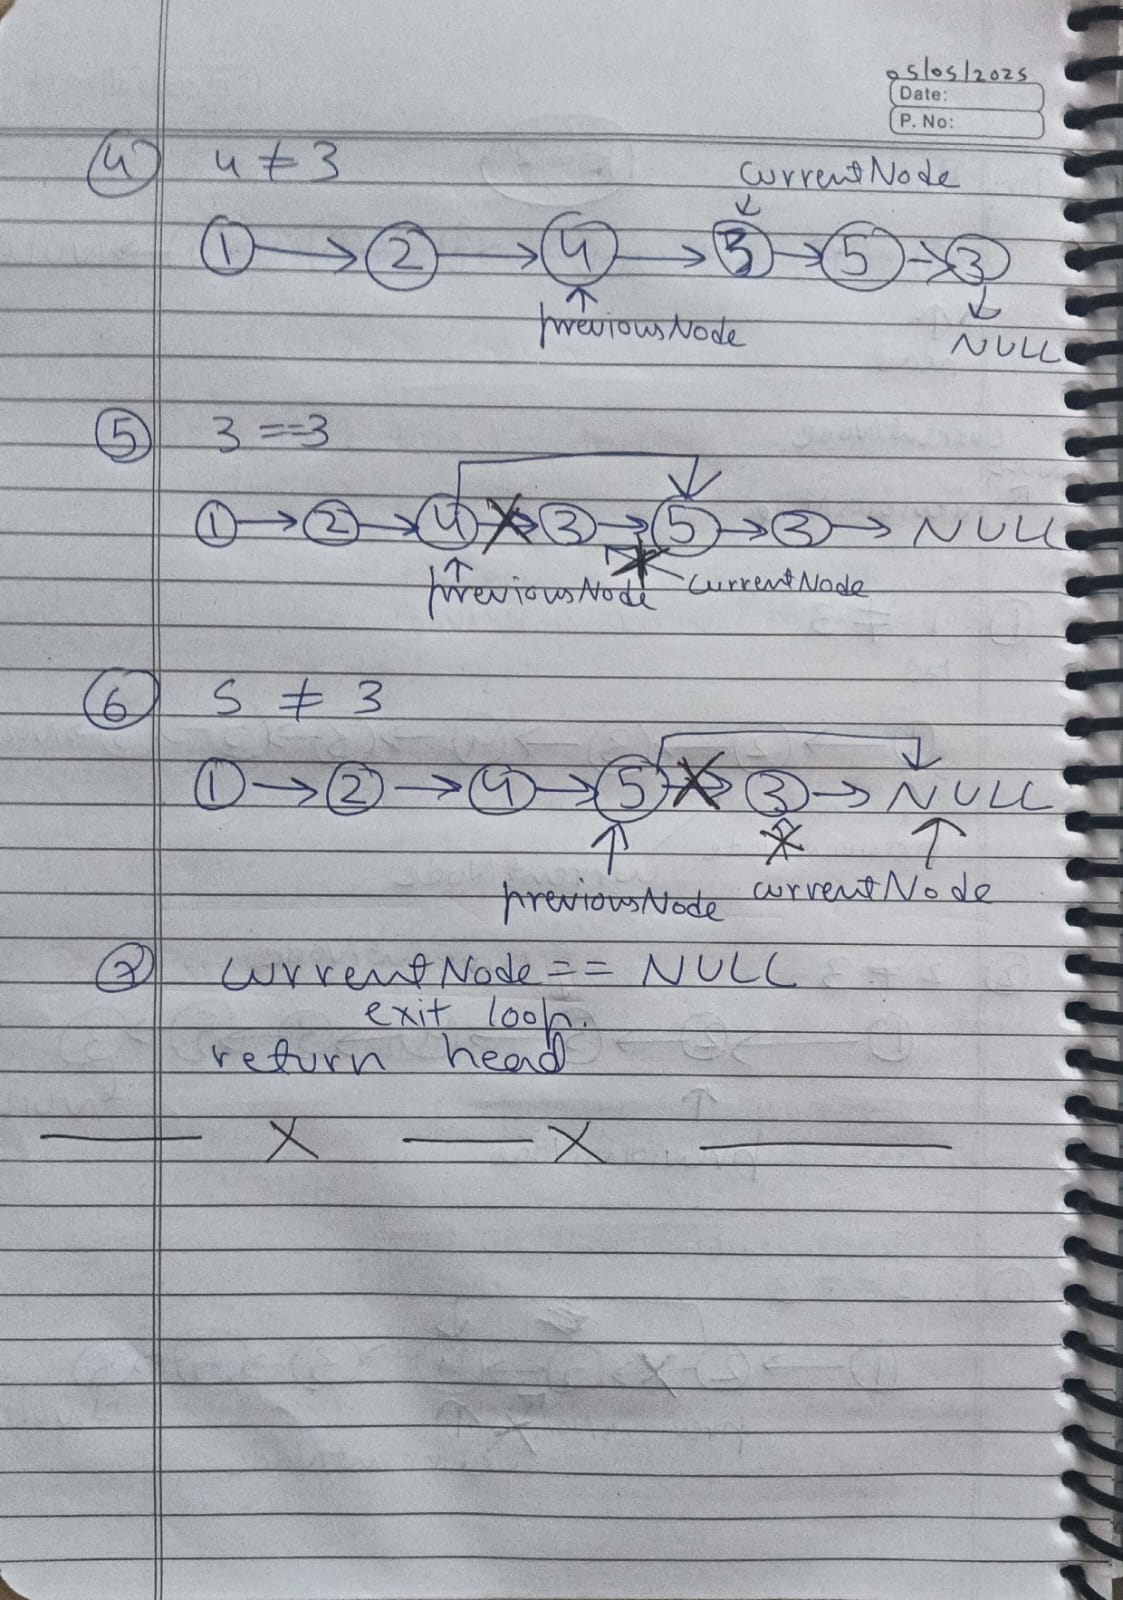 05/05/2025
Date:
P. No:
④ 4 ≠ 3
currentNode
↓
① → ② → ④ → ③ → ⑤ → ③
↑ ↓
previousNode NULL
⑤ 3 == 3
① → ② → ④ → ③ → ⑤ → ③ → NULL
↑
previousNode currentNode
⑥ 5 ≠ 3
① → ② → ④ → ⑤ → ③ → NULL
↑ ↑
previousNode currentNode
⑦ currentNode == NULL
exit loop.
return head
—— X —— X ——